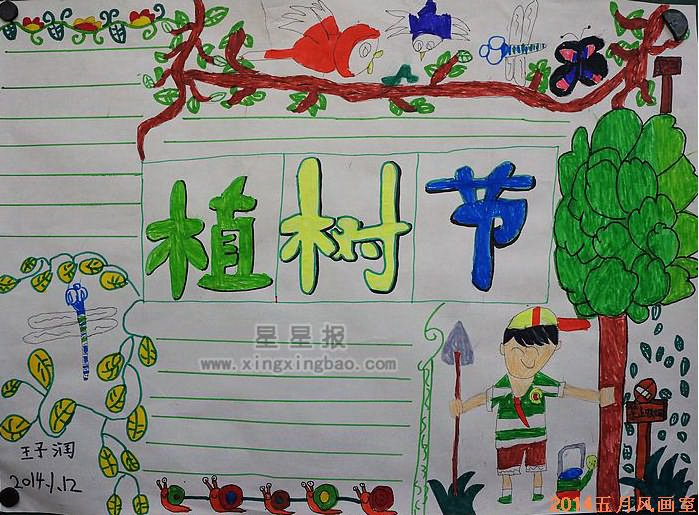 植树节
星星报
www.xingxingbao.com
王子润
2014.1.12
2014五月风画室